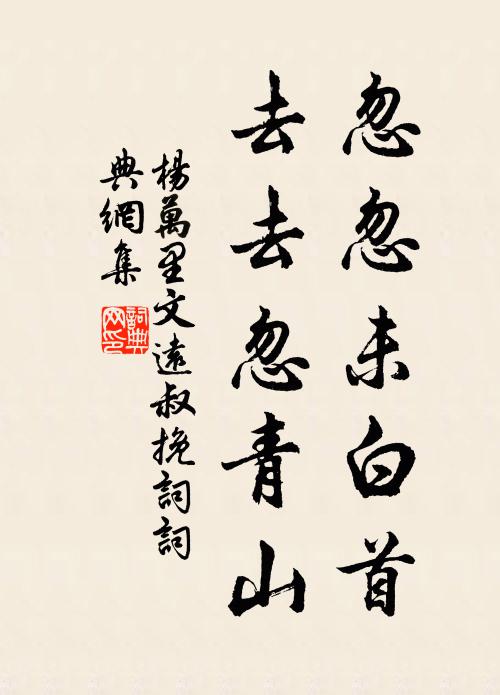 忽忽未白首
去去忽青山
楊萬里文遠叔挽詞詞
典網集
詞典网印